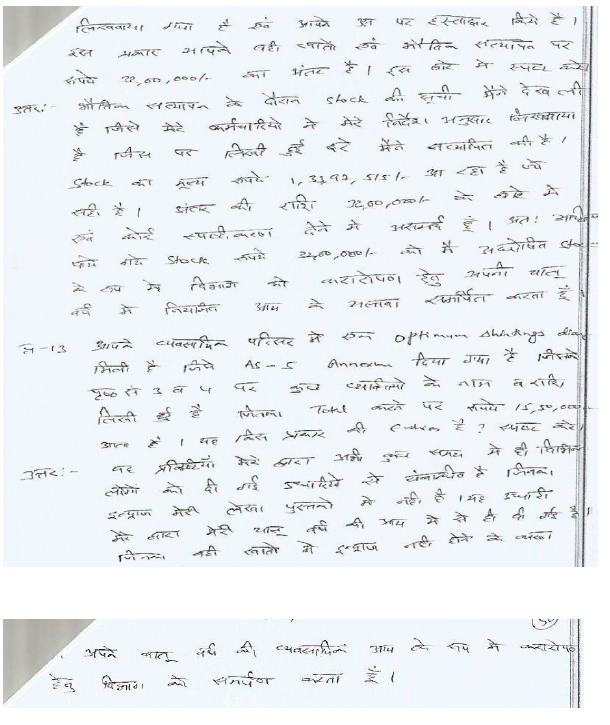 लिखवाया गया है एवं आपने उस पर हस्ताक्षर किये है।
इस प्रकार आपके बही खातो एवं भौतिक सत्यापन पर
रूपये 22,00,000/- का अंतर है। इस बारे मे स्पष्ट करे
उत्तर:- भौतिक सत्यापन के दौरान Stock की सूची मैने देख ली
है जिसे मेरे कर्मचारियो ने मेरे निर्देश अनुसार लिखवाया
है जिस पर लिखी हुई दरे मैने सत्यापित की है।
Stock का मूल्य रूपये 515/- आ रहा है जो
सही है। अंतर की राशि 22,00,000/- के बारे मे
एवं कोई स्पष्टीकरण देने मे असमर्थ हूँ। अत:
पाये गये Stock रूपये 22,00,000/- को मै अघोषित
के रूप मे विभाग को करारोपण हेतु अपनी चालू
वर्ष मे नियमित आय के अलावा समर्पित करता हूँ।
प्र-13 आपके व्यवसायिक परिसर मे एक Optimum
मिली है जिसे AS-5 Annexure दिया गया है जिसके
पृष्ठ सं 3 व 4 पर कुछ व्यक्तियो के नाम व राशि
लिखी हुई है जिनका Total करने पर रूपये 15,50,000
आता है। यह किस प्रकार की Entries है? स्पष्ट करे।
उत्तर:- यह प्रविष्टियाँ मेरे द्वारा अभी कुछ समय मे ही विभिन्न
लोगो को दी गई उधारियो से संबन्धित है जिनका
इन्द्राज मेरी लेखा पुस्तको मे नही है। यह उधारी
मेरे द्वारा मेरी चालू वर्ष की आय मे से ही दी गई है।
जिनका बही खातो मे इन्द्राज नही होने के कारण
अपने चालू वर्ष की व्यवसायिक आय के रूप मे करारोपण
हेतु विभाग को समर्पण करता हूँ।